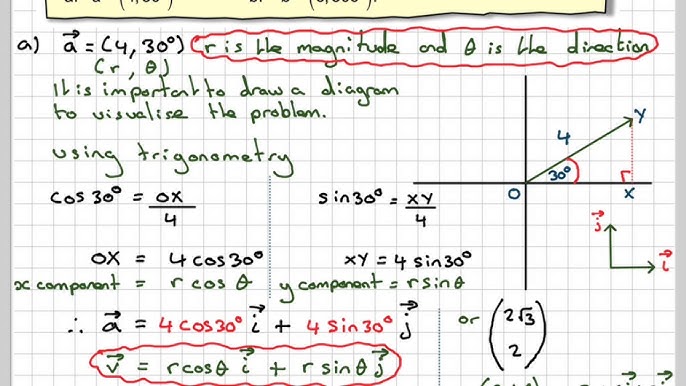 a) a⃗ = (4, 30°) (r is the magnitude and θ is the direction
(r, θ)
It is important to draw a diagram
to visualise the problem.
using trigonometry
Y
4
30°
O
X
cos30° = OX/4
sin30° = XY/4
OX = 4cos30°
XY = 4sin30°
x component = r cos θ
y component = r sin θ
j⃗
i⃗
∴ a⃗ = 4cos30° i⃗ + 4sin30° j⃗
or (2√3
2)
v⃗ = rcosθ i⃗ + r sinθ j⃗